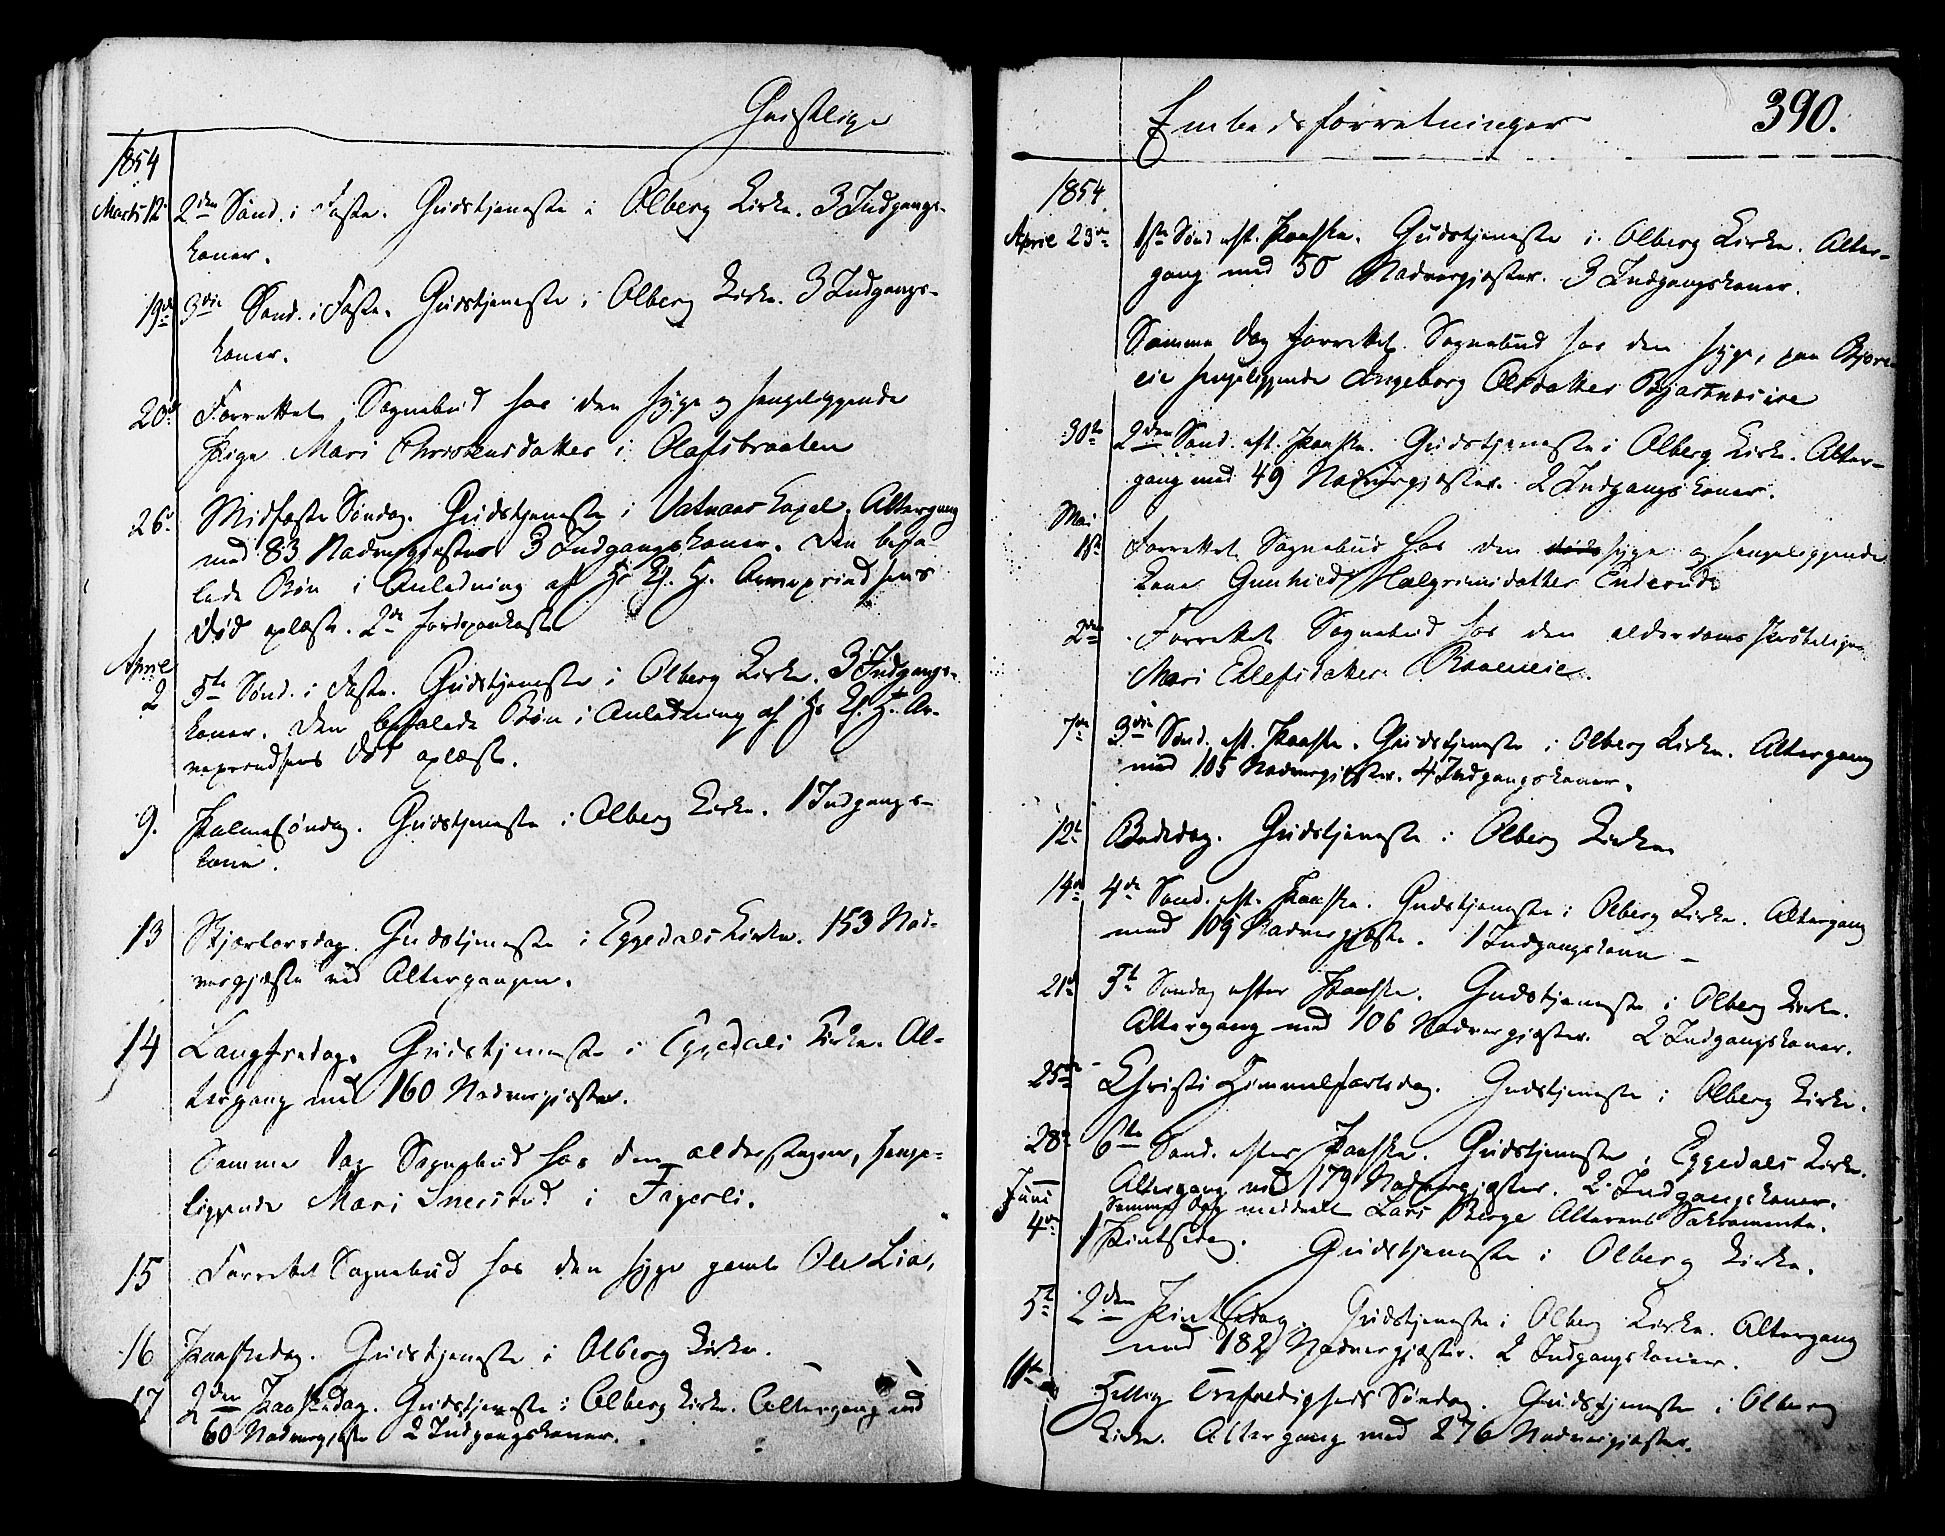 Geistlige
1854
Marts 12. 2den Sønd. i Faste. Gudstjeneste i Olberg Kirke. 3 Indgangs-
koner.
19de 3die Sønd. i Faste. Gudstjeneste i Olberg Kirke. 3 Indgangs-
koner.
20d Forrettet Sognebud hos den syge og sengeliggende
Pige Mari Christensdatter i Olafsbraaten
26d Midfaste Søndag. Gudstjeneste i Vatnaas Capel. Altergang
med 83 Nadvergjester 3 Indgangskoner. Den befa-
lede Bøn i Anledning af Hs Kl. H. Arveprindsens
Død oplæst.
April
2 5te Sønd. i Faste. Gudstjeneste i Olberg Kirke. 3 Indgangs-
koner. Den befalede Bøn i Anledning af Hs Kl. H. Ar-
veprindsens Død oplæst.
9. Palmesøndag. Gudstjeneste i Olberg Kirke. 1 Indgangs-
kone.
13 Skjærtorsdag. Gudstjeneste i Eggedals Kirke. 153 Nad-
vergjeste ved Altergangen.
14 Langfredag. Gudstjeneste i Eggedals Kirke. Al-
tergang med 160 Nadvergjester.
Samme Dag Sognebud hos den alderstegne, senge-
liggende Mari Sneistud i Fagerli.
15 Forrettet Sognebud hos den syge gamle Ole Lia.
16 Paaskedag. Gudstjeneste i Olberg Kirke.
17 2den Paaskedag. Gudstjeneste i Olberg Kirke. Altergang med
60 Nadvergjeste 2 Indgangskoner.
Embedsforretninger 390.
1854
April 23de 1ste Sønd. eft. Paaske. Gudstjeneste i Olberg Kirke. Alter-
gang med 50 Nadvergjester. 3 Indgangskoner.
Samme Dag forrettet Sognebud hos den syge, paa
sengeliggende Ingeborg Olsdatter
30te 2den Sønd. eft. Paaske. Gudstjeneste i Olberg Kirke. Alter-
gang med 49 Nadvergjester. 2 Indgangskoner.
Mai
1ste Forrettet Sognebud hos den syge og sengeliggende
Kone Gunhild Halgrimsdatter Enderud
2den Forrettet Sognebud hos den alderdomsskrøbelige
Mari Ellefsdatter
7de 3die Sønd. eft. Paaske. Gudstjeneste i Olberg Kirke. Altergang
med 105 Nadvergjester. 4 Indgangskoner.
12te Bededag. Gudstjeneste i Olberg Kirke
14de 4de Sønd. eft. Paaske. Gudstjeneste i Olberg Kirke. Altergang
med 109 Nadvergjeste. 1 Indgangskone –
21de 5te Søndag efter Paaske. Gudstjeneste i Olberg Kirke.
Altergang med 106 Nadvergjester. 2 Indgangskoner.
25de Christi Himmelfartsdag. Gudstjeneste i Olberg Kirke.
28de 6te Sønd. efter Paaske. Gudstjeneste i Eggedals Kirke.
Altergang med 179 Nadvergjester. 2 Indgangskoner.
Samme Dag meddelt Lars Berge Alterens Sakramente.
Juni
4de 1 Pintsedag. Gudstjeneste i Olberg Kirke.
5te 2den Pintsedag. Gudstjeneste i Olberg Kirke. Altergang
med 182 Nadvergjester. 2 Indgangskoner.
11te Hellig Trefoldigheds Søndag. Gudstjeneste i Olberg
Kirke. Altergang med 276 Nadvergjester.